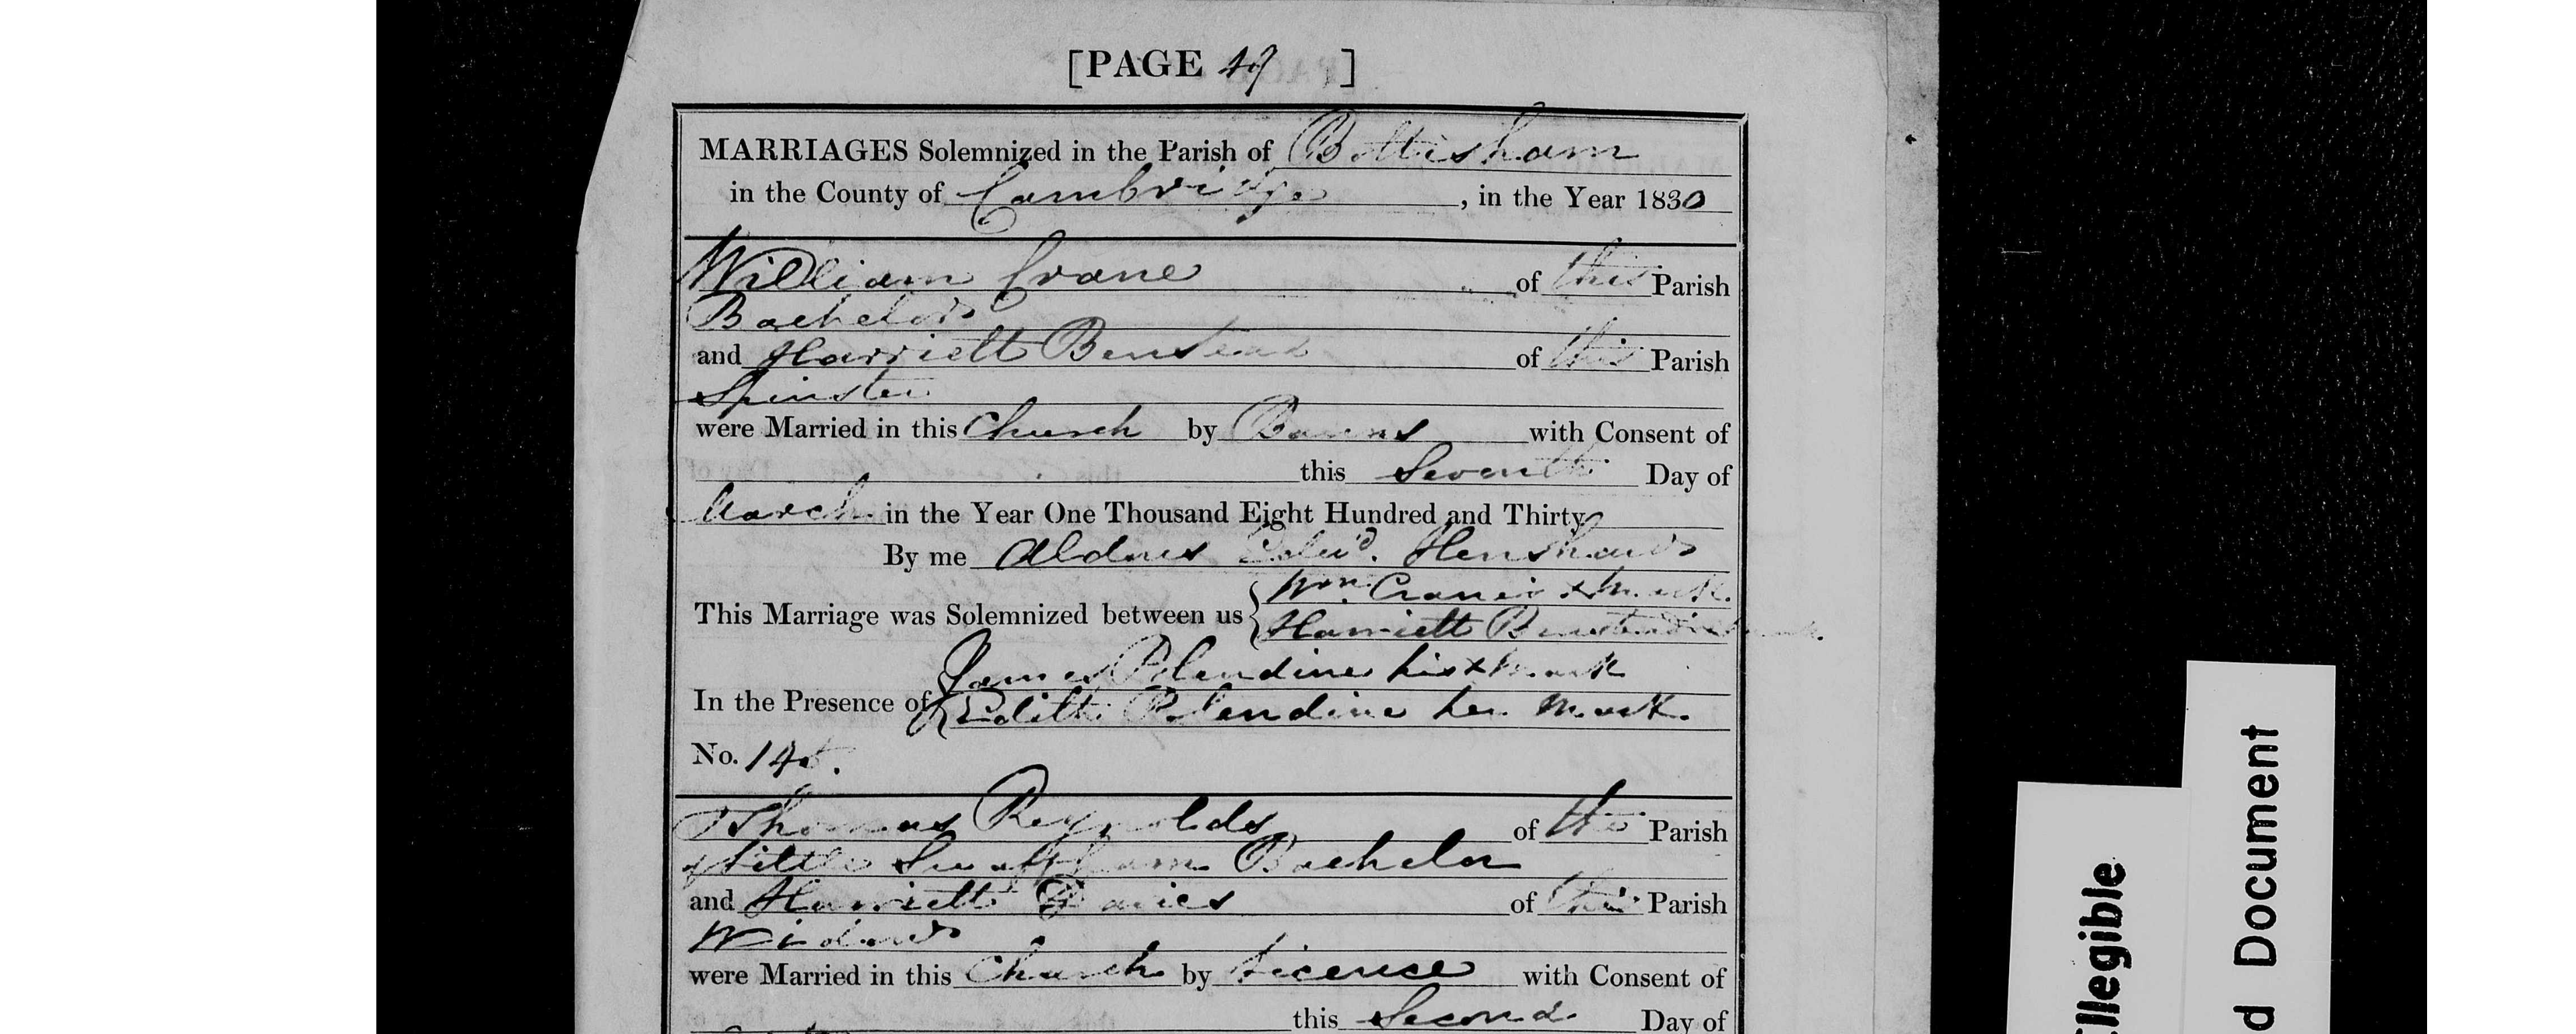 [PAGE 49 ]
MARRIAGES Solemnized in the Parish of Bottisham
in the County of Cambridge, in the Year 1830
William Crane of this Parish
Bachelor
and Harriett Benstead of this Parish
Spinster
were Married in this Church by Banns with Consent of
this Seventh Day of
March in the Year One Thousand Eight Hundred and Thirty
By me Aldous Edwd. Henshaw
This Marriage was Solemnized between us
Wm. Crane's x mark.
Harriett Benstead's mark.
James Blendine his x mark
In the Presence of
Edith Blendine her mark.
No. 145.
Thomas Reynolds of the Parish
of Little Swaffham Bachelor
and Harriett Davies of this Parish
Widow
were Married in this Church by Licence with Consent of
this Second Day of
Illegible
d Document